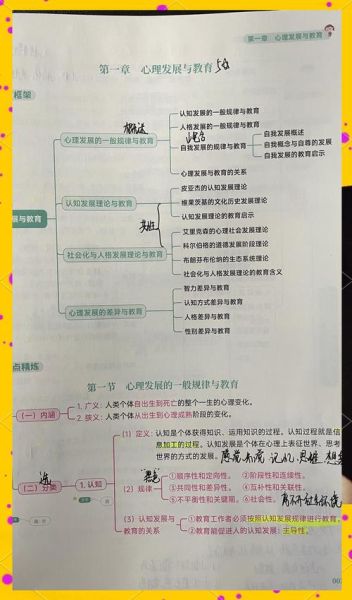 第一章 心理发展与教育
第一章 心理发展与教育
框架
认知发展的一般规律与教育
人格发展的一般规律与教育
心理发展的一般规律与教育
自我发展的规律与教育
自我发展概述
自我概念与自尊的发展
自我发展的教育启示
心理发展与教育的关系
皮亚杰的认知发展理论
认知发展理论与教育
维果茨基的文化历史发展理论
认知发展理论的教育启示
展与教育
艾里克森的心理社会发展理论
社会化与人格发展理论与教育
科尔伯格的道德发展阶段理论
布朗芬布伦纳的生态系统理论
社会化与人格发展理论的教育含义
智力差异与教育
心理发展的差异与教育
认知方式差异与教育
人格差异与教育
性别差异与教育
点精炼
第一节 心理发展的一般规律与教育
(一) 内涵
1. 广义:人类个体自出生到死亡的整个一生的心理变化。
2. 狭义:人类个体从出生到心理成熟阶段的变化。
(1) 定义:认知是个体获得知识、运用知识的过程。认知过程就是信
息加工的过程。认知发展是个体在心理上表征世界、思考
世界的方式的发展。感觉 知觉 记忆 思维 想象
(二) 分类
1. 认知
(2) 规律
①顺序性和定向性。 ②阶段性和连续性。
③共同性和差异性。 ④互补性和关联性。
⑤不平衡性和关键期。 ⑥社会性。
(3) 认知发展与
教育的关系
①教育工作者必须按照认知发展规律进行教育。
②教育能促进人的认知发展:主导性。